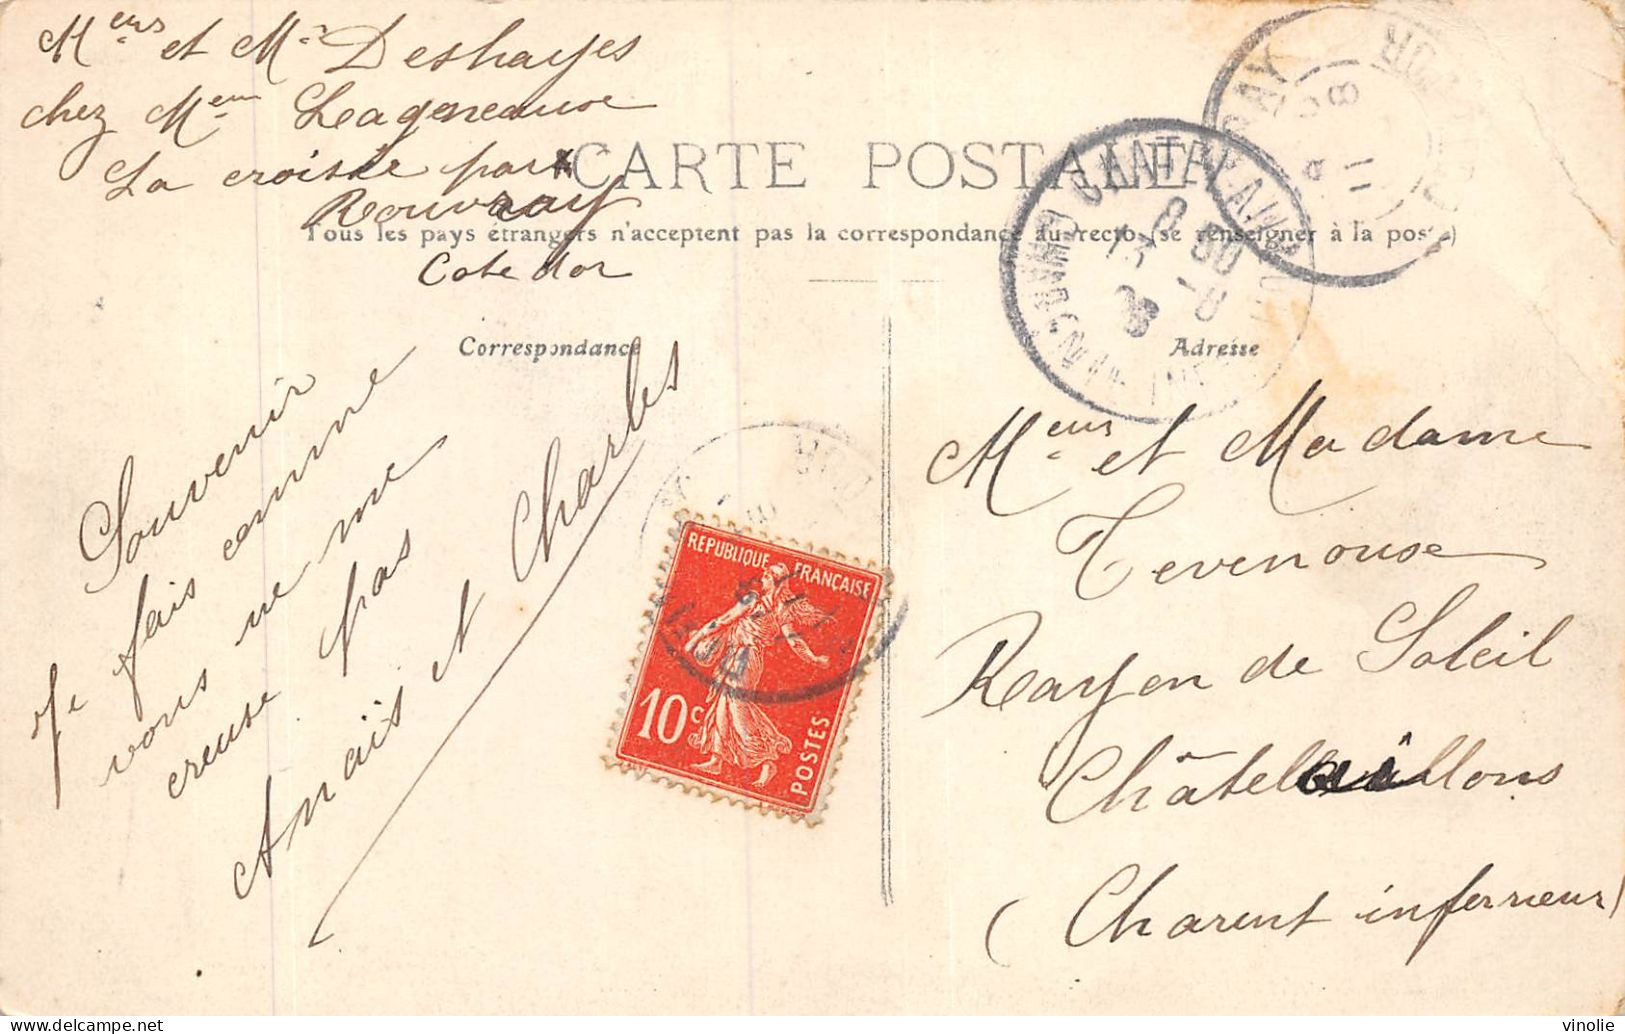 Meurs et Me Deshayes
chez Mem Lagneauxe
La croisée par
Rouvray
Cote dor
CARTE POSTALE
Tous les pays étrangers n'acceptent pas la correspondance au recto (se renseigner à la poste)
Correspondance
Souvenir
Je fais comme
vous ne me
creuse pas
Anaïs et Charles
REPUBLIQUE FRANÇAISE
10c
POSTES
ROUVRAY
CHATELAILLON
Adresse
Meurs et Madame
Tevenouse
Rayon de Soleil
Châtelaillons
(Charent inferrieur)
vinolie